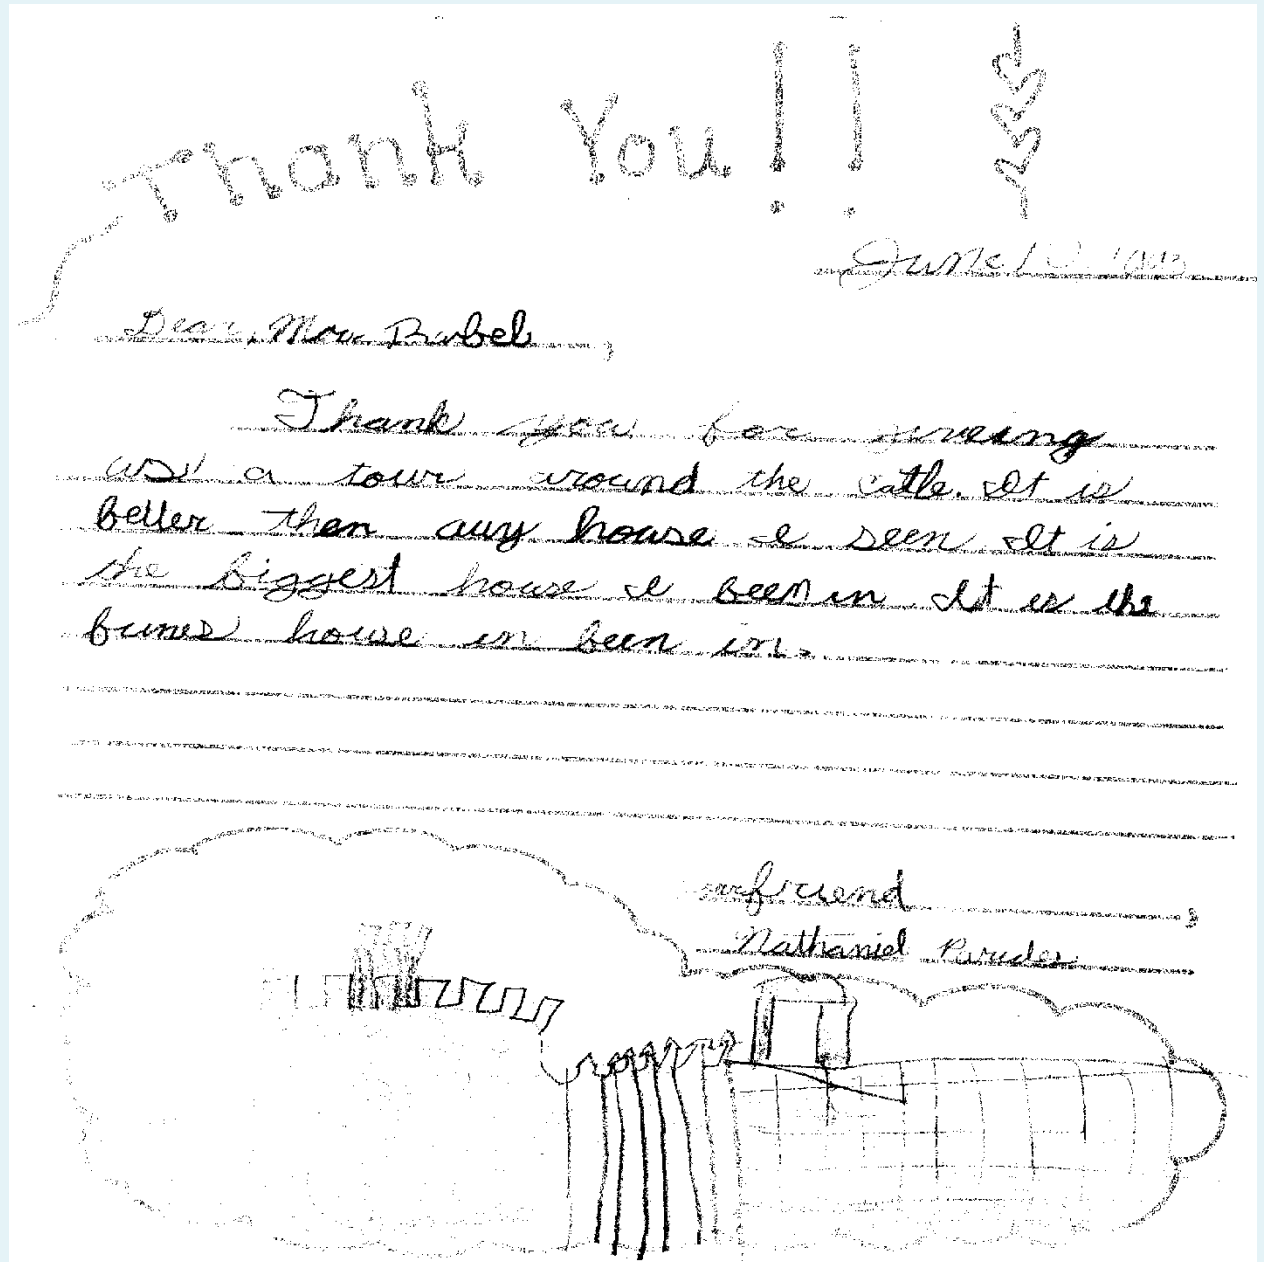 Thank You!!
June
Dear, Mr. Rubel,
Thank you for giveing
us a tour around the catle. It is
better then any house I seen It is
the biggest house I been in It is the
funes house in been in.
friend,
Nathaniel